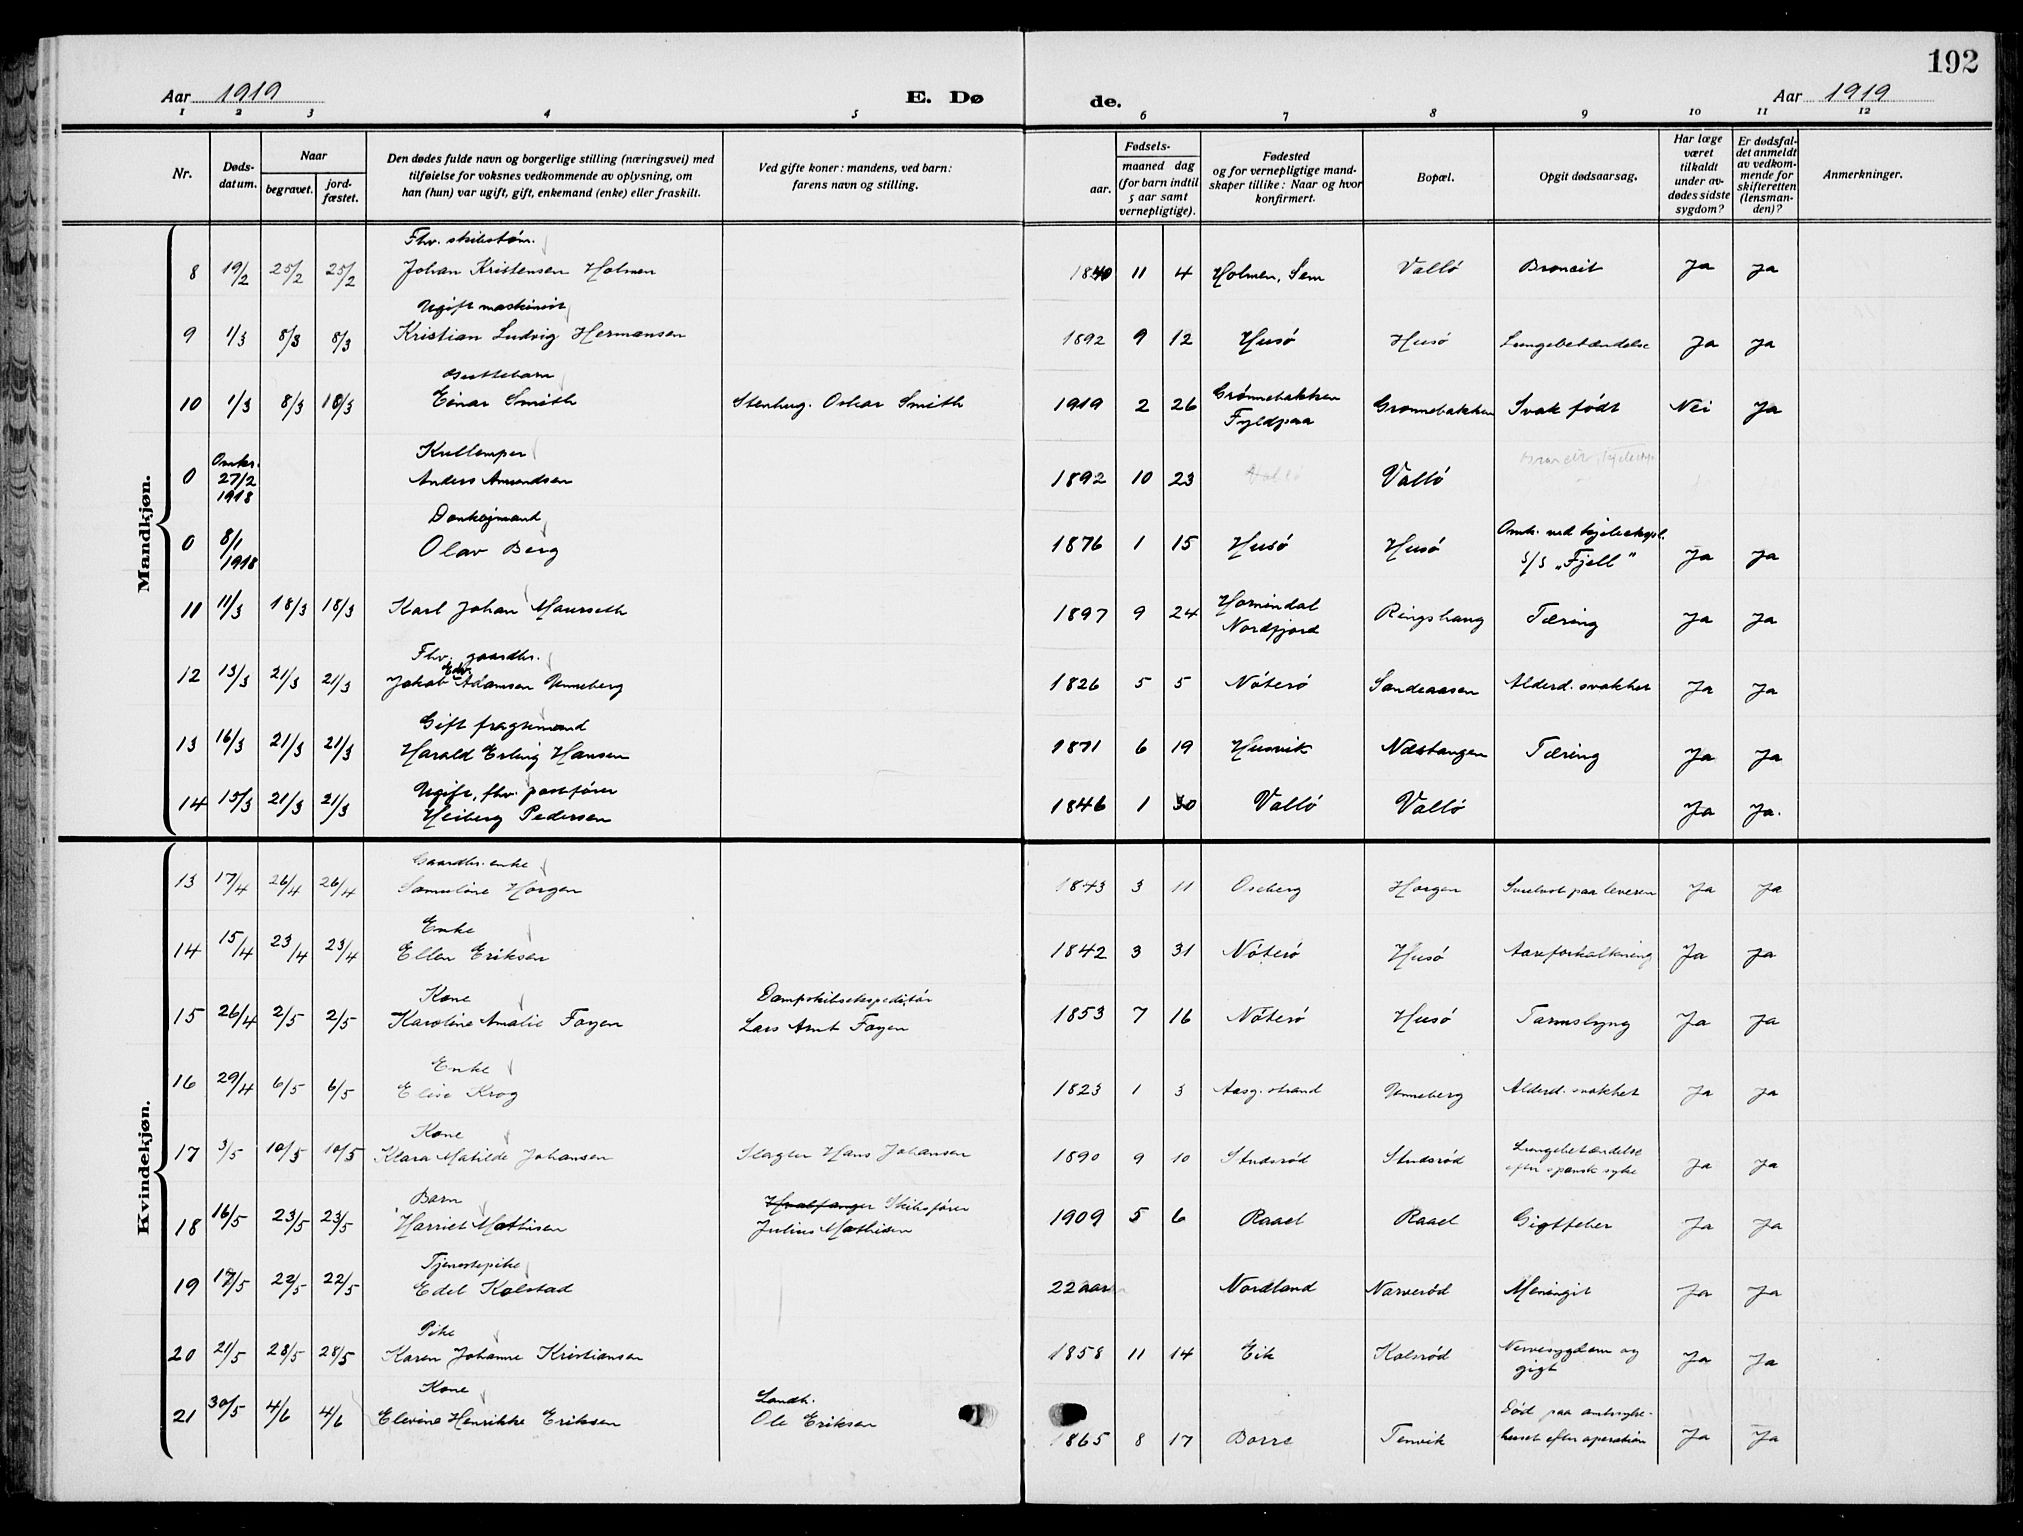 192
Aar 1919
E. Dø
de.
Aar 1919
1 2 3 4 5 6 7 8 9 10 11 12
Nr.
Døds-
datum.
Naar
begravet.
jord-
fæstet.
Den dødes fulde navn og borgerlige stilling (næringsvei) med
tilføielse for voksnes vedkommende av oplysning, om
han (hun) var ugift, gift, enkemand (enke) eller fraskilt.
Ved gifte koner: mandens, ved barn:
farens navn og stilling.
Fødsels-
aar.
maaned dag
(for barn indtil
5 aar samt
vernepligtige).
Fødested
og for vernepligtige mand-
skaper tillike: Naar og hvor
konfirmert.
Bopæl.
Opgit dødsaarsag.
Har læge
været
tilkaldt
under av-
dødes sidste
sygdom?
Er dødsfal-
det anmeldt
av vedkom-
mende for
skifteretten
(lensman-
den)?
Anmerkninger.
Mandkjøn.
Fhv. skibstøm.
8 19/2 25/2 25/2 Johan Kristensen Holmen 1840 11 4 Holmen, Sem Vallö Broncit Ja Ja
Ugift maskinist
9 1/3 8/3 8/3 Kristian Ludvig Hermansen 1892 9 12 Husö Husö Lungebetændelse Ja Ja
10 1/3 8/3 18/3 Einar Smith Stenhug. Oskar Smith 1919 2 26 Grønnebakken Grønnebakken Svak født Nei Ja
Fyldpaa
Kullemper
0 Omkr. 27/2 1918 Anders Amundsen 1892 10 23 Vallö Vallö
Donkeymand
0 8/1 1918 Olav Berg 1876 1 15 Husö Husö Omk. ved kjeleekspl. S/S „Fjell" Ja Ja
11 11/3 18/3 18/3 Karl Johan Maurseth 1897 9 24 Hornindal Nordfjord Ringshaug Tæring Ja Ja
Fhv. gaardbr.
12 13/3 21/3 21/3 Jakob Edv. Adamsen Venneberg 1826 5 5 Nöterö Sandeaasen Alderd. svakhet Ja Ja
Gift fragtemand
13 16/3 21/3 21/3 Harald Erling Hansen 1871 6 19 Husvik Næstangen Tæring Ja Ja
Ugift, fhv. postfører
14 15/3 21/3 21/3 Heiberg Pedersen 1846 1 30 Vallö Vallö Ja Ja.
Kvindekjøn.
Gaardbr. enke
13 17/4 26/4 26/4 Samuline Horgen 1843 3 11 Oseberg Horgen Svulvst paa leveren Ja Ja
Enke
14 15/4 23/4 23/4 Ellen Eriksen 1842 3 31 Nöterö Husö Aareforkalkning Ja Ja
Kone Dampskibsekspeditör
15 26/4 2/5 2/5 Karoline Amalie Foyen Lars Amt Foyen 1853 7 16 Nöterö Husö Tarmslyng Ja Ja
Enke
16 29/4 6/5 6/5 Elise Krog 1823 1 3 Aasg.strand Venneberg Alderd. svakhet Ja Ja
Kone
17 3/5 10/5 10/5 Klara Matilde Johansen Slagter Hans Johansen 1890 9 10 Studsrød Studsrød Lungebetændelse efter spansk syke Ja Ja
Barn Hvalfanger Skibsfører
18 16/5 23/5 23/5 Harriet Mathisen Julius Mathisen 1909 5 6 Raael Raael Gigtfeber Ja Ja
Tjenestepike
19 17/5 22/5 22/5 Edel Kolstad 22 aar Nordland Narverød Meningit Ja Ja
Pike
20 21/5 28/5 28/5 Karen Johanne Kristiansen 1858 11 14 Eik Kolsrød Nervesygdom og gigt Ja Ja
Kone Landh.
21 30/5 4/6 4/6 Elevine Henrikke Eriksen Ole Eriksen 1865 8 17 Borre Tenvik Död paa amtssyke-huset efter operation Ja Ja